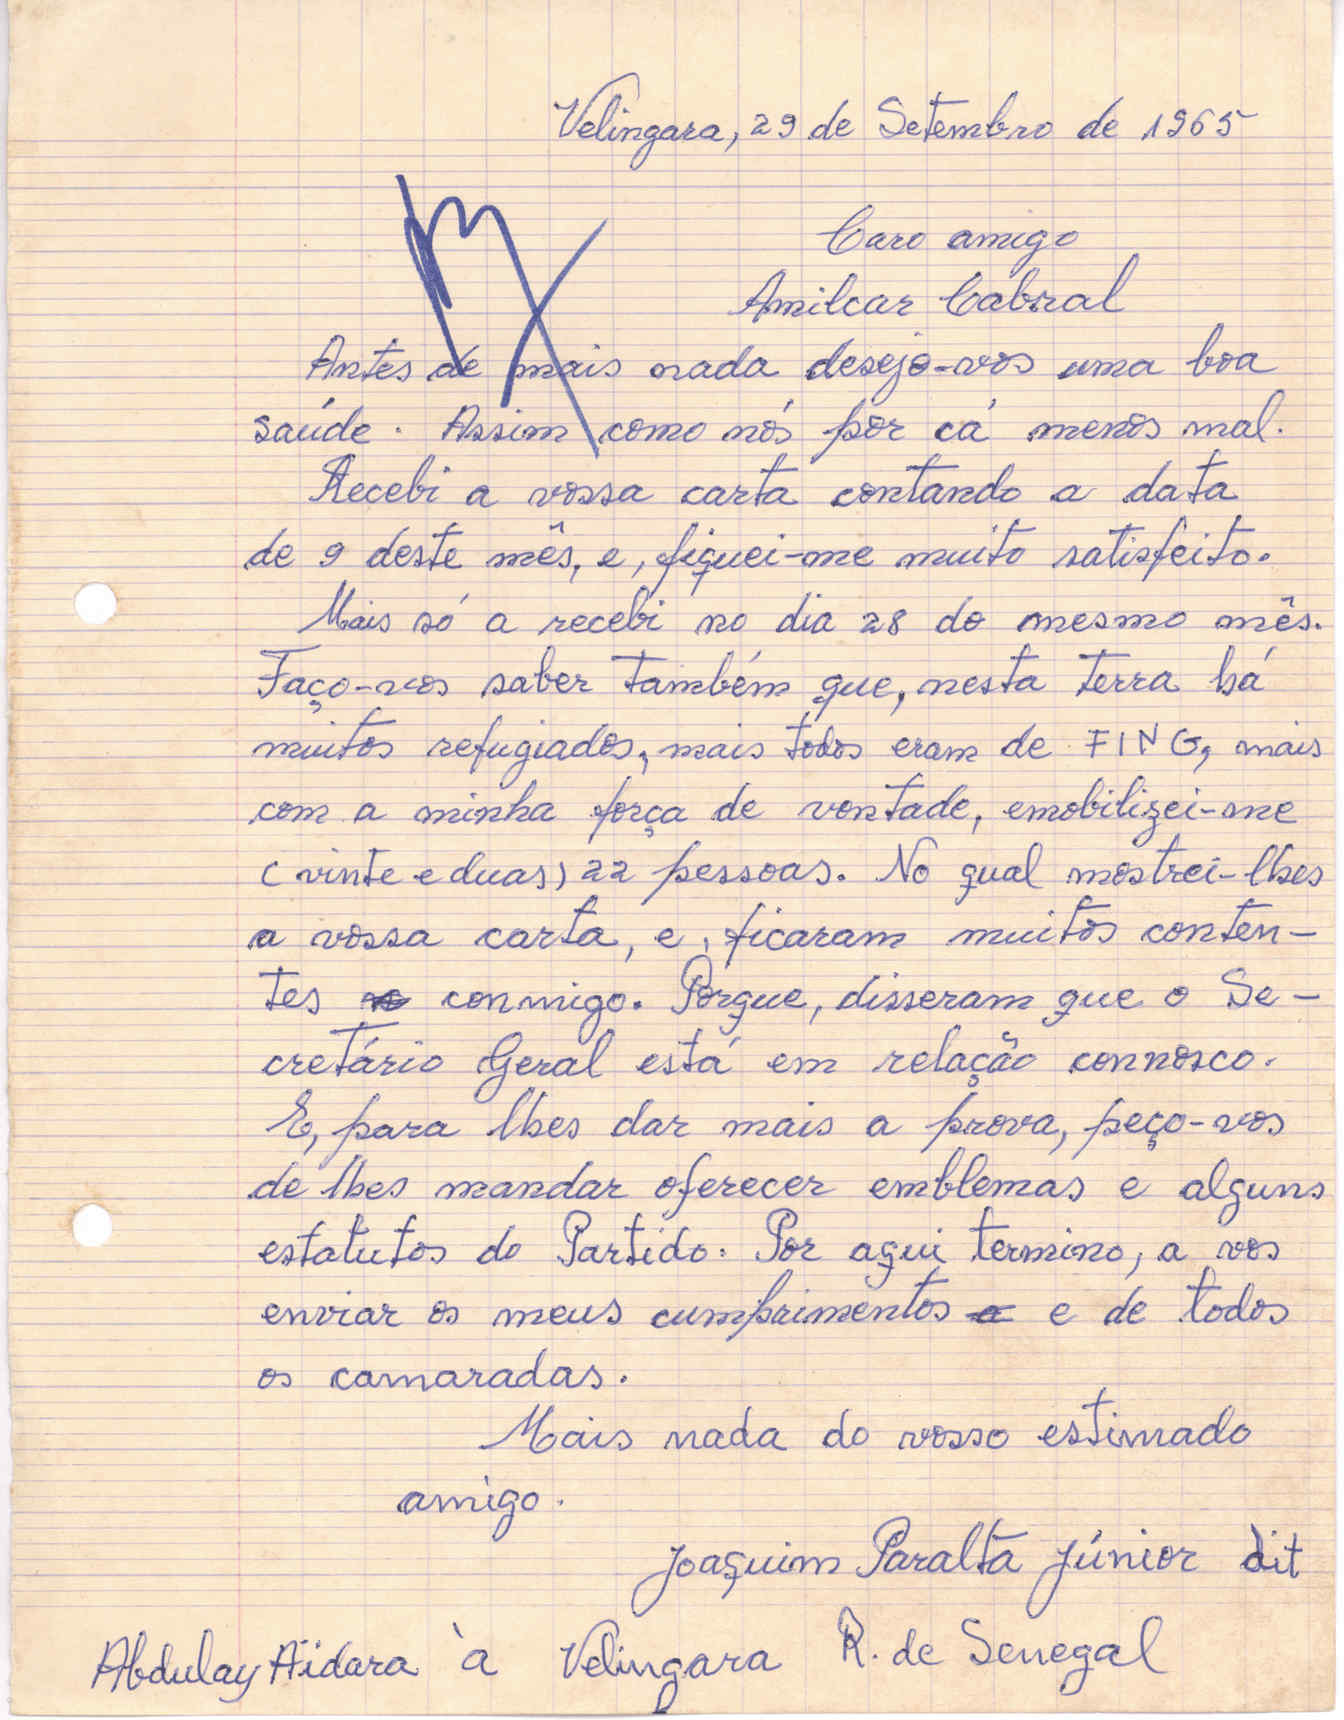 Velingara, 29 de Setembro de 1965
Caro amigo
Amilcar Cabral
Antes de mais nada desejo-vos uma boa
saúde. Assim como nós por cá menos mal.
Recebi a vossa carta contando a data
de 9 deste mês, e, fiquei-me muito satisfeito.
Mais só a recebi no dia 28 do mesmo mês.
Faço-vos saber também que, nesta terra há
muitos refugiados, mais todos eram de FING, mais
com a minha força de vontade, emobilizei-me
(vinte e duas) 22 pessoas. No qual mostrei-lhes
a vossa carta, e, ficaram muitos conten-
tes conmigo. Porque, disseram que o Se-
cretário Geral está em relação connosco.
E, para lhes dar mais a prova, peço-vos
de lhes mandar oferecer emblemas e alguns
estatutos do Partido. Por aqui termino, a vos
enviar os meus cumprimentos e de todos
os camaradas.
Mais nada do vosso estimado
amigo.
Joaquim Paralta Júnior dit
Abdulay Aïdara à Velingara R. de Senegal